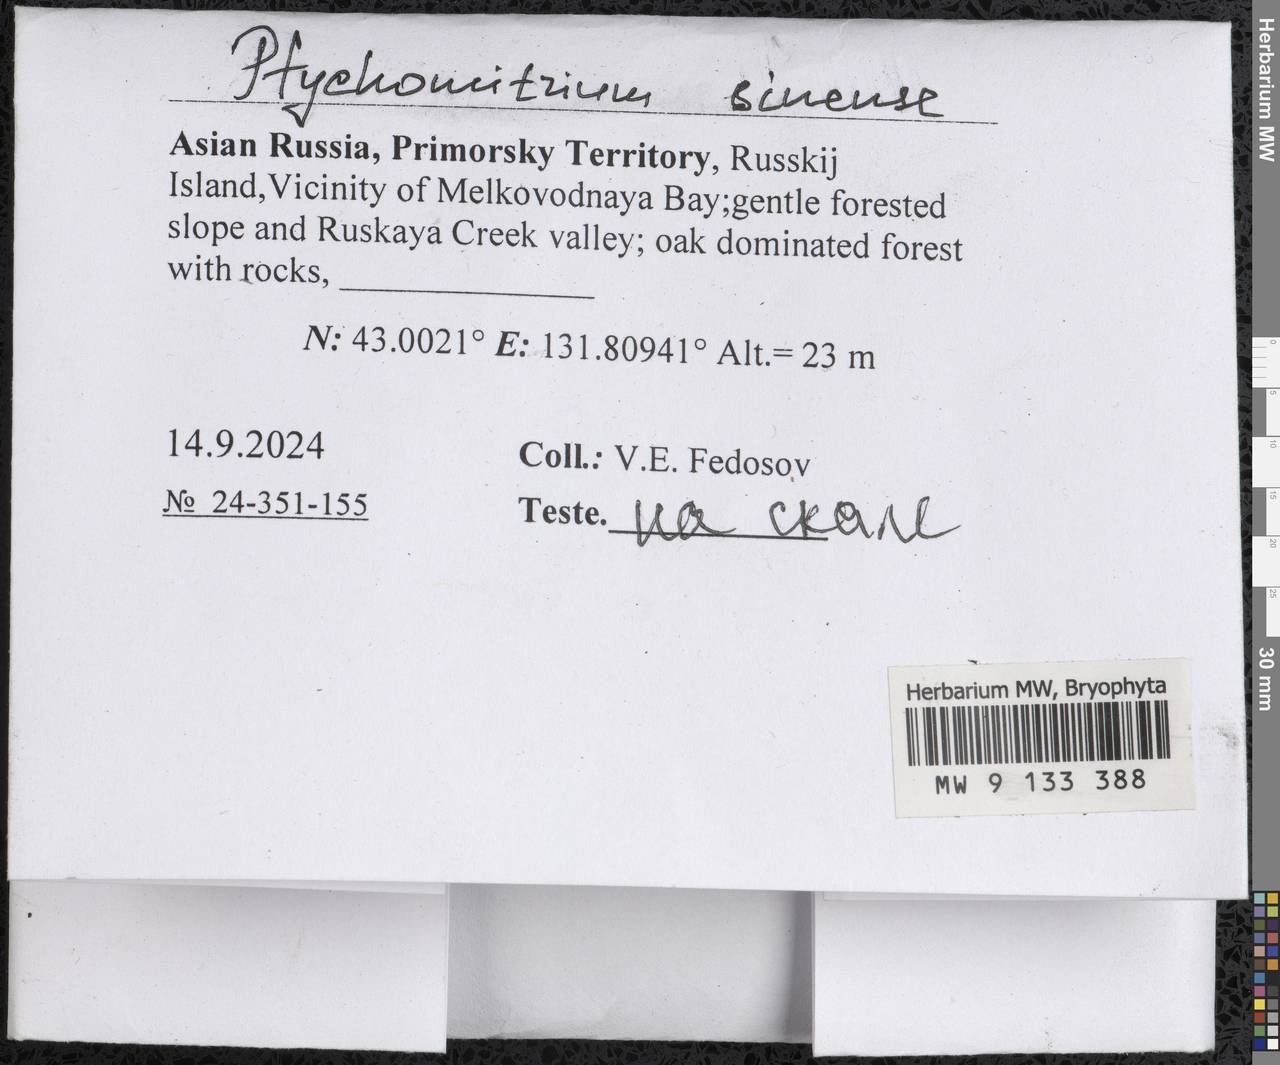 Ptychomitrium sinense
Asian Russia, Primorsky Territory, Russkij
Island,Vicinity of Melkovodnaya Bay;gentle forested
slope and Ruskaya Creek valley; oak dominated forest
with rocks,
N: 43.0021° E: 131.80941° Alt.= 23 m
14.9.2024
Coll.: V.E. Fedosov
№ 24-351-155
Teste. на скале
Herbarium MW, Bryophyta
MW 9 133 388
Herbarium MW
0
5
10
15
20
25
30 mm